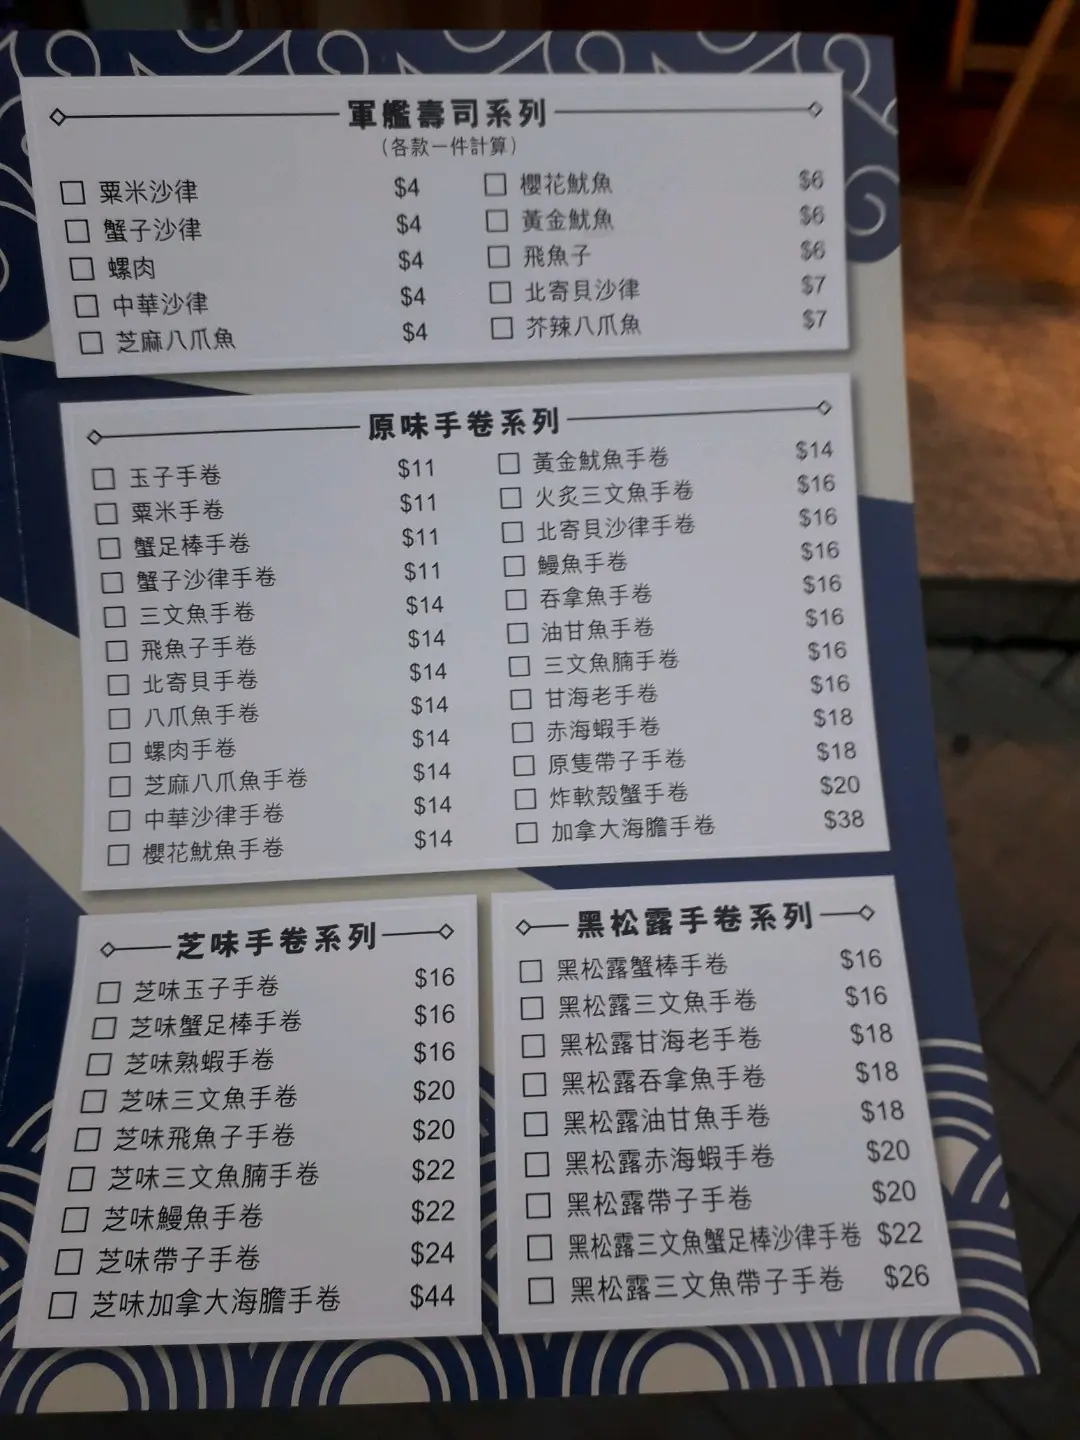 軍艦壽司系列
(各款一件計算)
粟米沙律 $4
蟹子沙律 $4
螺肉 $4
中華沙律 $4
芝麻八爪魚 $4
櫻花魷魚 $6
黃金魷魚 $6
飛魚子 $6
北寄貝沙律 $7
芥辣八爪魚 $7
原味手卷系列
玉子手卷 $11
粟米手卷 $11
蟹足棒手卷 $11
蟹子沙律手卷 $11
三文魚手卷 $14
飛魚子手卷 $14
北寄貝手卷 $14
八爪魚手卷 $14
螺肉手卷 $14
芝麻八爪魚手卷 $14
中華沙律手卷 $14
櫻花魷魚手卷 $14
黃金魷魚手卷 $14
火炙三文魚手卷 $16
北寄貝沙律手卷 $16
鰻魚手卷 $16
吞拿魚手卷 $16
油甘魚手卷 $16
三文魚腩手卷 $16
甘海老手卷 $16
赤海蝦手卷 $18
原隻帶子手卷 $18
炸軟殼蟹手卷 $20
加拿大海膽手卷 $38
芝味手卷系列
芝味玉子手卷 $16
芝味蟹足棒手卷 $16
芝味熟蝦手卷 $16
芝味三文魚手卷 $20
芝味飛魚子手卷 $20
芝味三文魚腩手卷 $22
芝味鰻魚手卷 $22
芝味帶子手卷 $24
芝味加拿大海膽手卷 $44
黑松露手卷系列
黑松露蟹棒手卷 $16
黑松露三文魚手卷 $16
黑松露甘海老手卷 $18
黑松露吞拿魚手卷 $18
黑松露油甘魚手卷 $18
黑松露赤海蝦手卷 $20
黑松露帶子手卷 $20
黑松露三文魚蟹足棒沙律手卷 $22
黑松露三文魚帶子手卷 $26